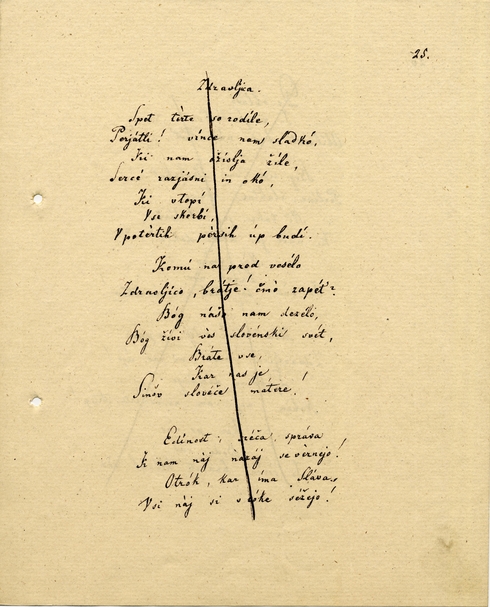 25.
Zdravljica.
Spet tèrte so rodile,
Perjátli! vince nam sladkó,
Ki nam oživlja žile,
Sercé razjásni in okó,
Ki vtopí
Vse skerbí,
V potèrtih pèrsih úp budí.
Komú naprod vesélo
Zdravljico, brátje! čmò zapét'?
Bóg nášo nam deželo,
Bóg živi vès slovénski svét,
Bráte vse,
Kar nas je
Sinóv slovéče mátere!
Edínost, sréča, správa
K nam náj nazáj se vèrnejo!
Otrók, kar íma Sláva,
Vsi náj si v róke séžejo!